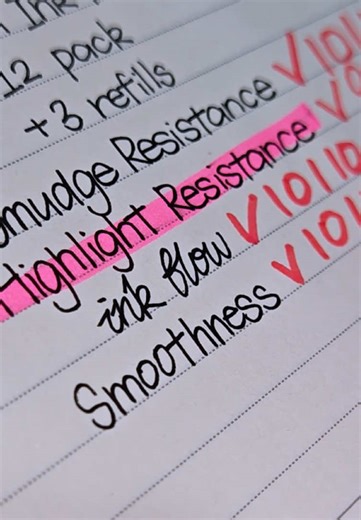 Ink
12 pack
+3 refills
mudge Resistance ✓101
Highlight Resistance ✓10
ink flow ✓10110
Smoothness ✓101